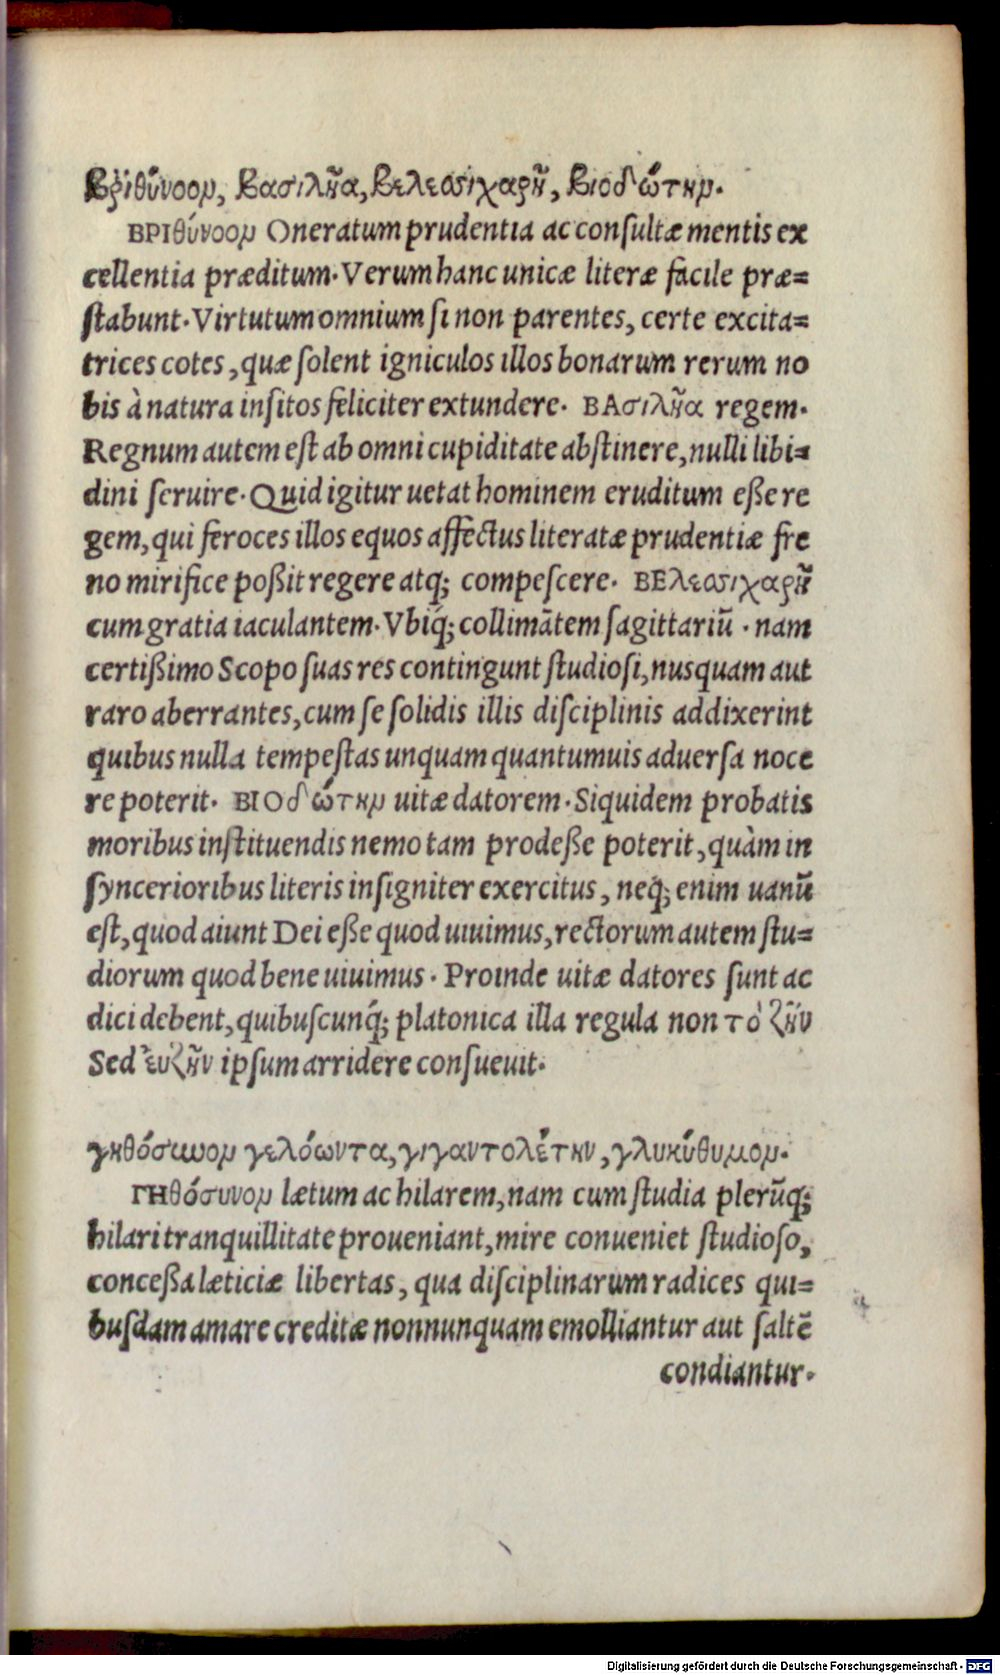 Βριθύνοον, Βασιλῆα, Βελεσσιχαρῆ, Βιοδώτην.
ΒΡΙθύνοον Oneratum prudentia ac consultæ mentis ex
cellentia præditum. Verum hanc unicæ literæ facile præ=
ſtabunt. Virtutum omnium ſi non parentes, certe excita=
trices cotes, quæ ſolent igniculos illos bonarum rerum no
bis à natura inſitos feliciter extundere. ΒΑσιλῆα regem.
Regnum autem eſt ab omni cupiditate abſtinere, nulli libi=
dini ſeruire. Quid igitur uetat hominem eruditum eße re
gem, qui feroces illos equos affectus literatæ prudentiæ fre
no mirifice poßit regere atq; compeſcere. ΒΕλεσσιχαρῆ
cum gratia iaculantem. Vbiq́; collimātem ſagittariū . nam
certißimo Scopo ſuas res contingunt ſtudioſi, nusquam aut
raro aberrantes, cum ſe ſolidis illis diſciplinis addixerint
quibus nulla tempeſtas unquam quantumuis aduerſa noce
re poterit. ΒΙΟδώτην uitæ datorem. Siquidem probatis
moribus inſtituendis nemo tam prodeße poterit, quàm in
ſyncerioribus literis inſigniter exercitus, neq; enim uanū
eſt, quod aiunt Dei eße quod uiuimus, rectorum autem ſtu=
diorum quod bene uiuimus. Proinde uitæ datores ſunt ac
dici debent, quibuſcunq́; platonica illa regula non τὸ ζῆν
Sed ἐυζῆν ipſum arridere conſueuit.
γηθόσυνον γελόωντα, γιγαντολέτην, γλυκύθυμον.
ΓΗθόσυνον lætum ac hilarem, nam cum ſtudia plerūq;
hilari tranquillitate proueniant, mire conueniet ſtudioſo,
conceßa læticiæ libertas, qua diſciplinarum radices qui=
buſdam amare creditæ nonnunquam emolliantur aut ſaltē
condiantur.
Digitalisierung gefördert durch die Deutsche Forschungsgemeinschaft - DFG